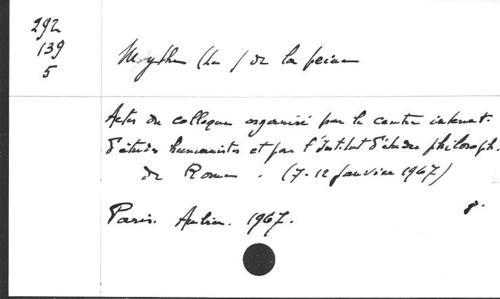 292
139
5
Mythe (Le) de la peine
Actes du colloque organisé par le centre internat.
d'études humanistes et par l'Institut d'études philosoph.
de Rome. (7-12 janvier 1967)
Paris. Aubier. 1967. 8°.